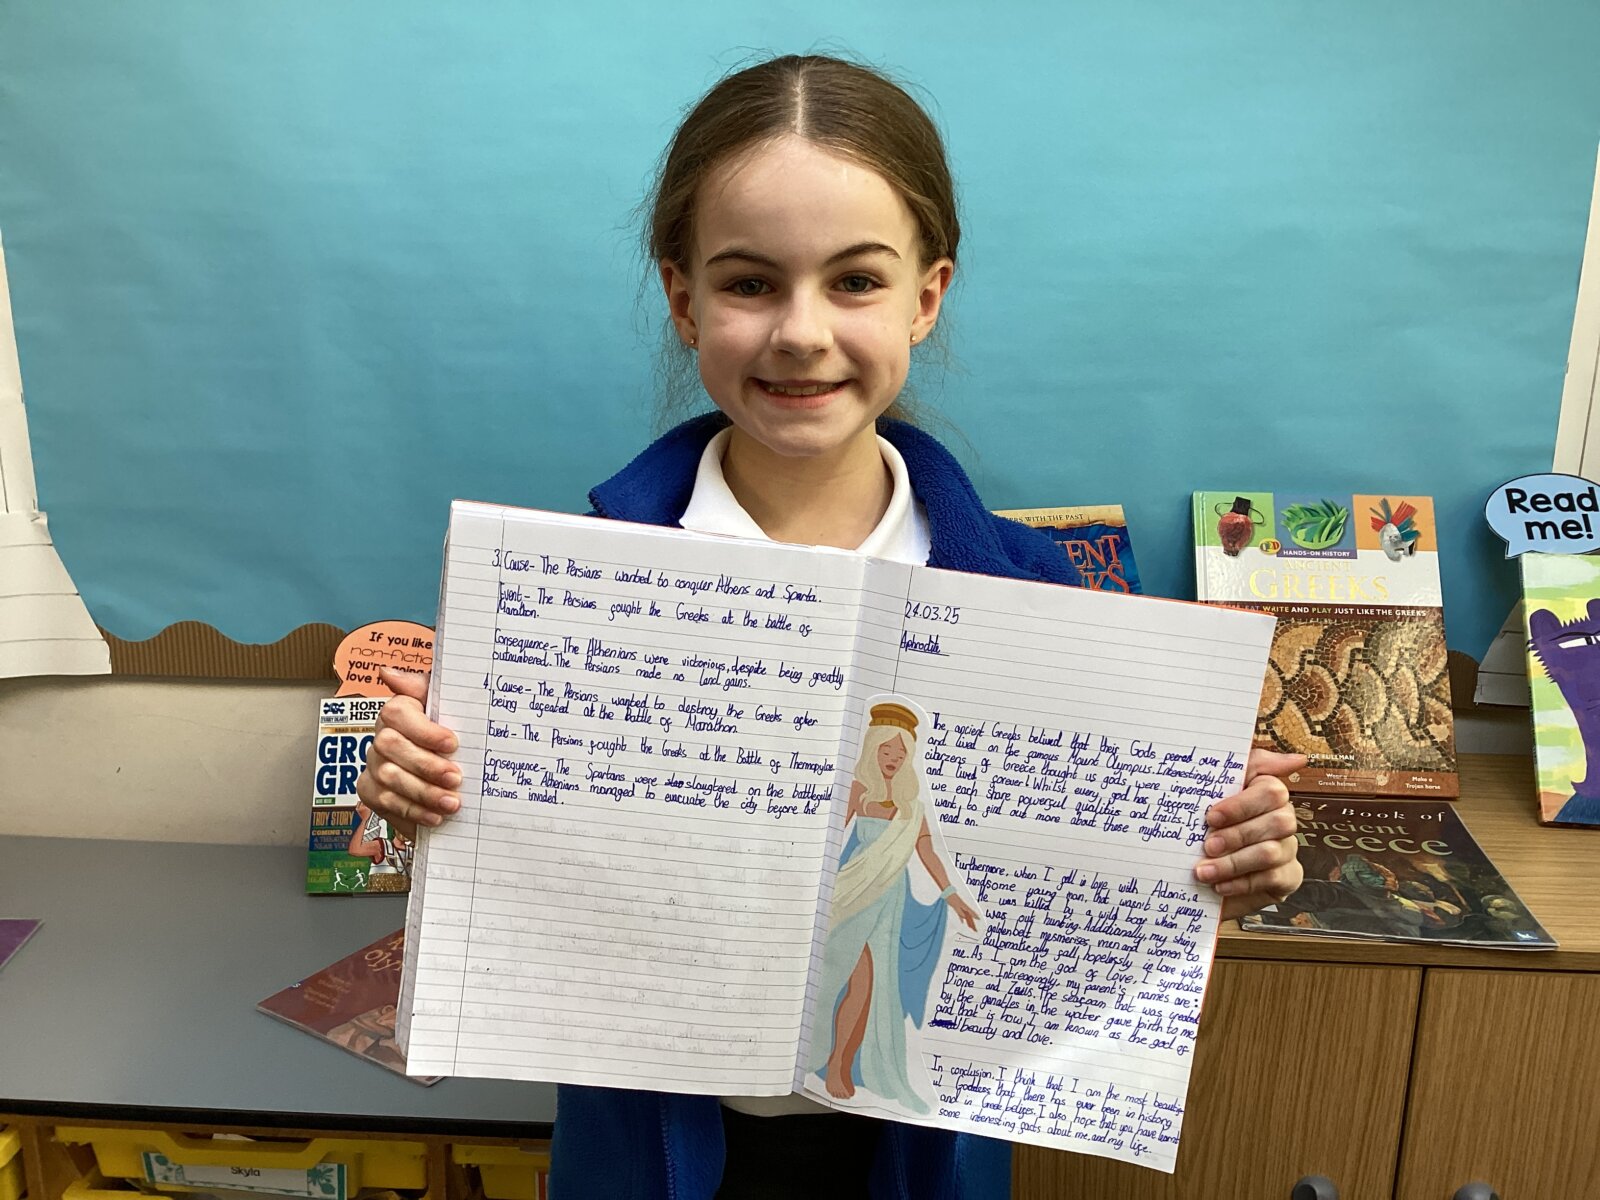 3. Cause- The Persians wanted to conquer Athens and Sparta.
Event- The Persians fought the Greeks at the battle of
Marathon.
Consequence- The Athenians were victorious, despite being greatly
outnumbered. The Persians made no land gains.
4. Cause- The Persians wanted to destroy the Greeks after
being defeated at the Battle of Marathon.
Event- The Persians fought the Greeks at the Battle of Thermopylae.
Consequence- The Spartans were slaughtered on the battlefield
but the Athenians managed to evacuate the city before the
Persians invaded.
24.03.25
Aphrodite
The ancient Greeks belived that their Gods over them
and lived on the famous Mount Olympus. Interestingly, the
citizens of Greece thought us gods were impenetrable
and lived forever! Whilst every god has different
we each share powerful qualities and traits. If
want to find out more about these mythical god
read on.
Furthermore, when I fell in love with Adonis, a
handsome young man, that wasn't so funny.
He was killed by a wild boar when he
was out hunting. Additionally, my shiny
golden belt mesmerises men and women to
automatically fall hopelessly in love with
me. As I am the god of love, I symbolise
romance. my parent's names are:
Dione and Zeus. The seafoam that was created
by the in the water gave birth to me,
and that is how I am known as the god of
beauty and love.
In conclusion, I think that I am the most beautif
ul Goddess that there has ever been in history
and in Greek I also hope that you have learnt
some interesting facts about me, and my life.
If you like
non-fictio
you're going
love
HORR
HIST
TERRY DEARY
READ ALL ABO
GRO
GR
TROY STORY
COMING TO
A THEATRE
NEAR YOU
OLYMPIC
Oly
Skyla
WITH THE PAST
ENT
KS
HANDS-ON HISTORY
ANCIENT
GREEKS
EAT WRITE AND PLAY JUST LIKE THE GREEKS
JOE FULLMAN
Wear a
Greek helmet
Make a
Trojan horse
Read
me!
st Book of
ncient
reece